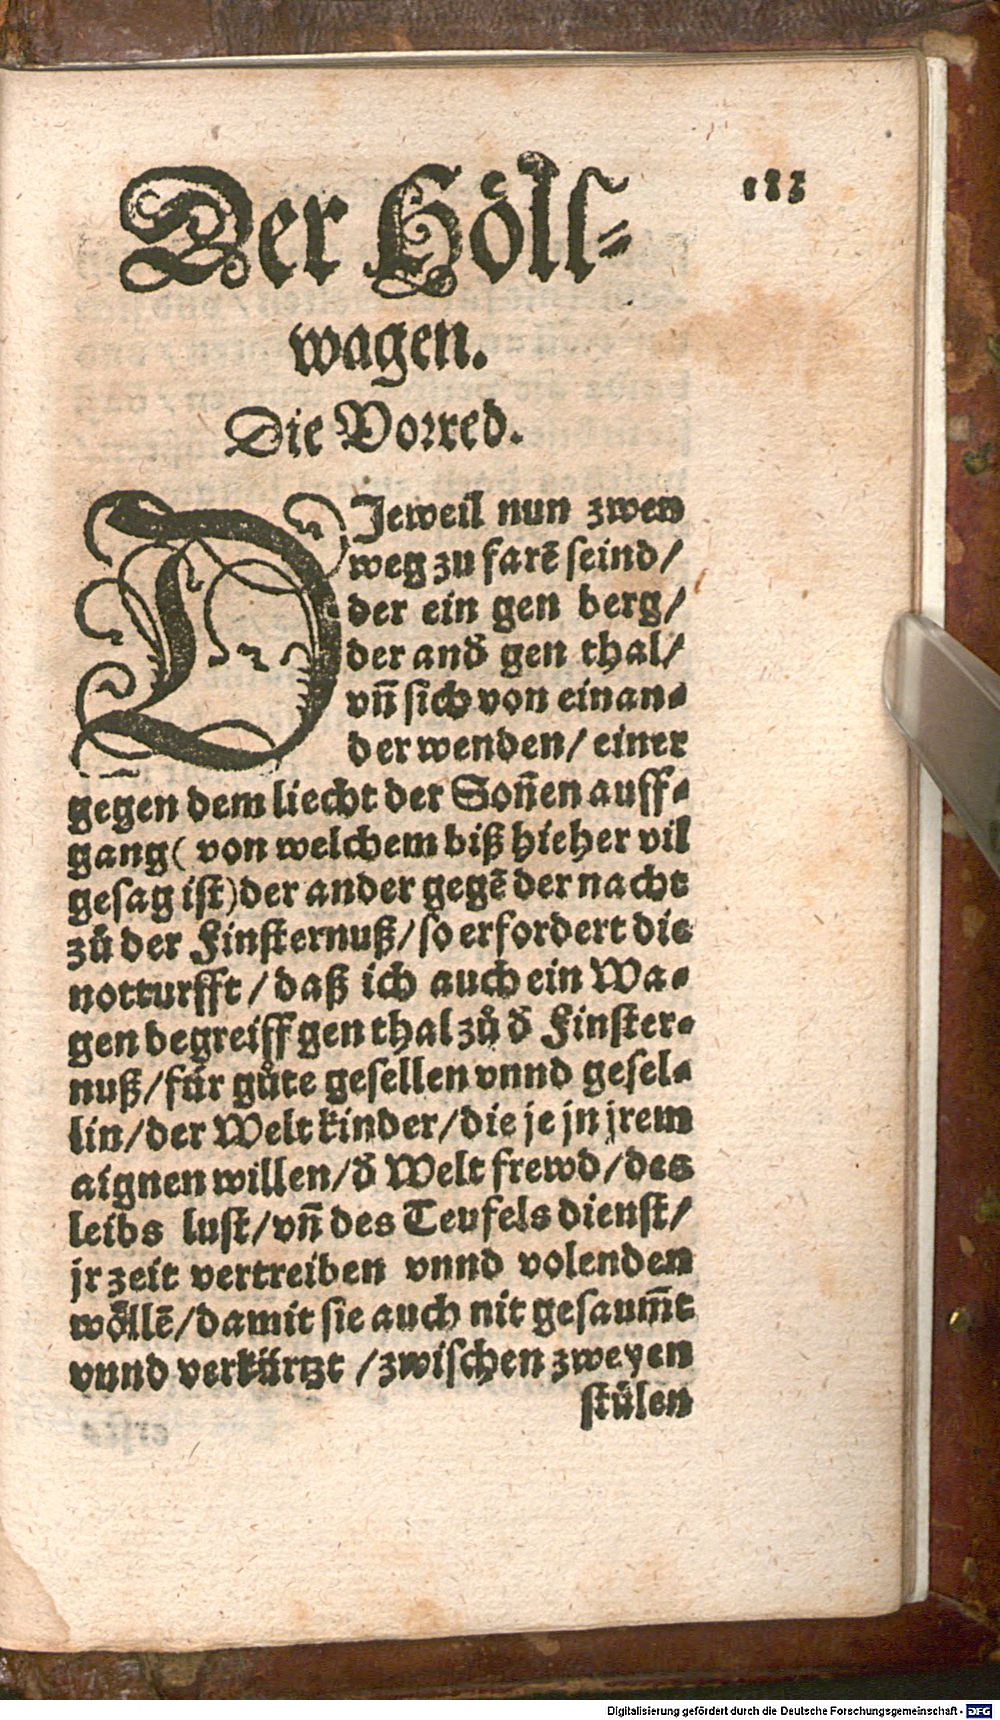 Der Höll-
wagen.
133
Die Vorred.
DJeweil nun zwen
weg zu farẽ seind/
der ein gen berg/
der and̃ gen thal/
vñ sich von einan-
der wenden/ einer
gegen dem liecht der Soñen auff-
gang( von welchem biß hieher vil
gesag ist)der ander gegẽ der nacht
zů der Finsternuß/so erfordert die
notturfft/daß ich auch ein Wa-
gen begreiff gen thal zů d̃ Finster-
nuß/für gůte gesellen vnnd gesel-
lin/der Welt kinder/die je jn jrem
aignen willen/d̃ Welt frewd/des
leibs lust/vñ des Teufels dienst/
jr zeit vertreiben vnnd volenden
wöllẽ/damit sie auch nit gesaum̃t
vnnd verkürtzt /zwischen zweyen
stůlen
Digitalisierung gefördert durch die Deutsche Forschungsgemeinschaft - DFG